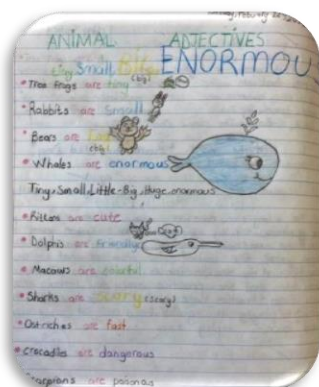 ANIMAL ADJECTIVES
tiny Small Big ENORMOUS
(big)
• Tree frogs are tiny
• Rabbits are Small
• Bears are
(big)
• Whales are enormous
Tiny, Small, Little-Big, Huge, enormous
• Kittens are cute
• Dolphis are friendly
• Macaws are colorful
• Sharks are scarry (scary)
• Ostriches are fast
• crocodiles are dangerous
scorpions are